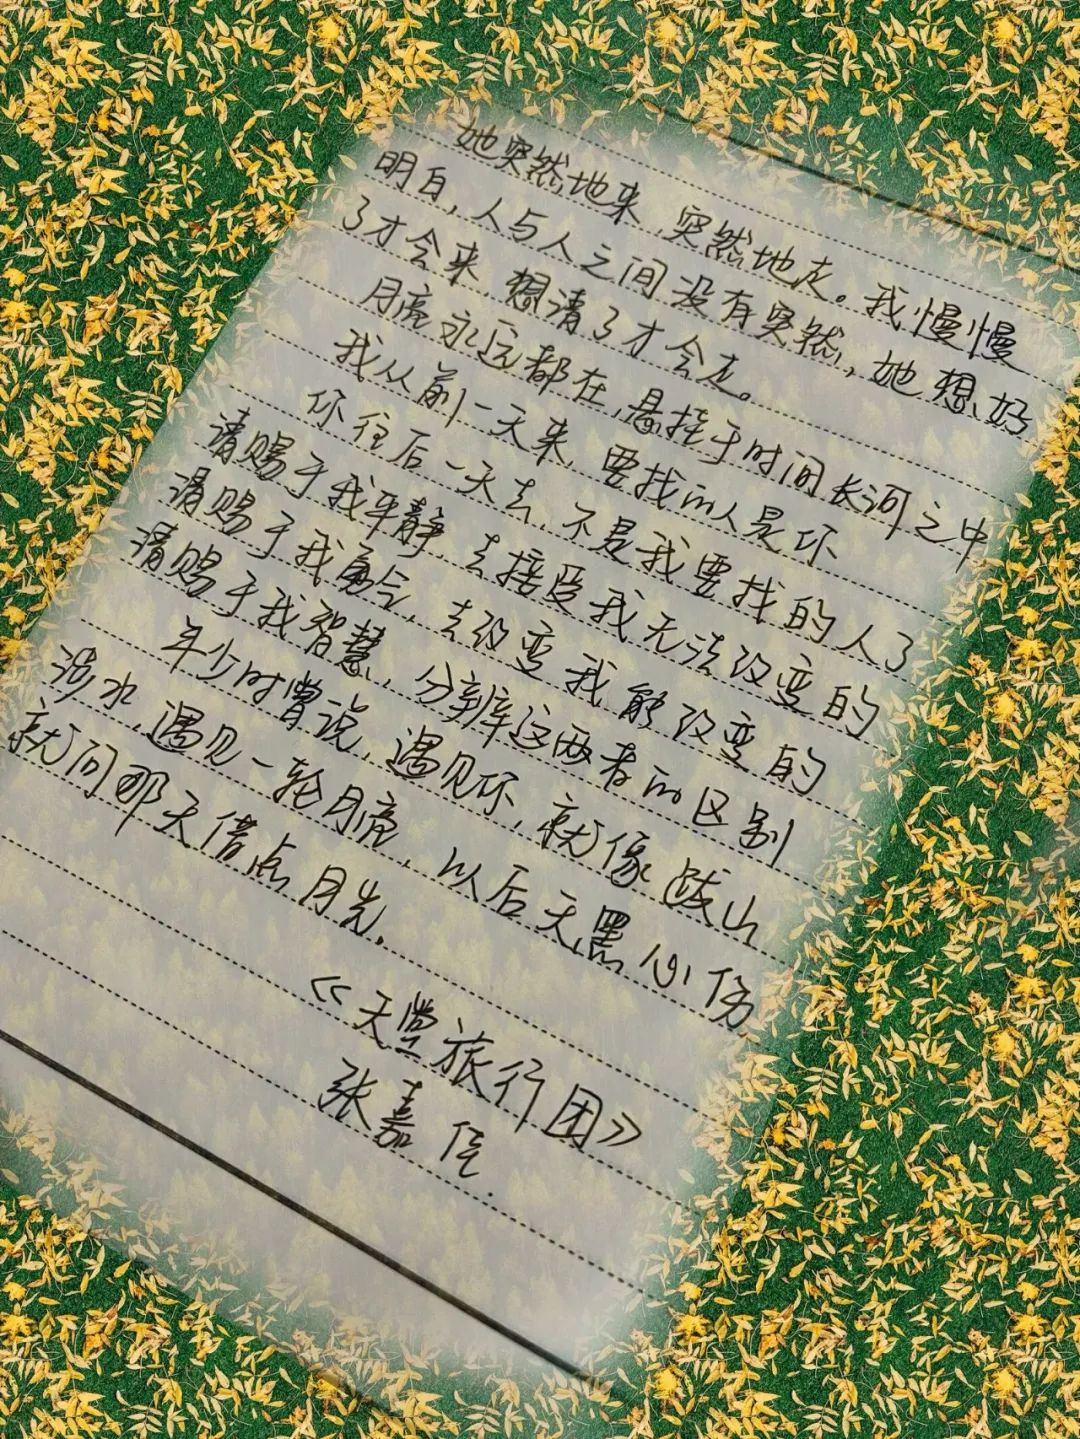 她突然地来，突然地走。我慢慢
明白，人与人之间没有突然，她想好
了才会来，想清了才会走。
月亮永远都在，悬挂于时间长河之中
我从前一天来，要找的人是你
你往后一天去，不是我要找的人了
请赐于我平静，去接受我无法改变的
请赐于我勇气，去改变我能改变的
请赐于我智慧，分辨这两者的区别
年少时曾说，遇见你，就像跋山
涉水，遇见一轮月亮，以后天黑心伤
就问那天借点月光。
《天堂旅行团》
张嘉佳.